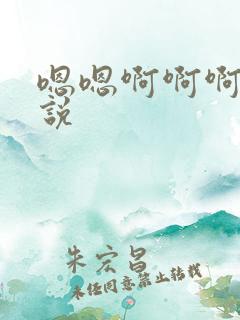 嗯嗯啊啊啊
說
朱宏昌
未经同意禁止转载